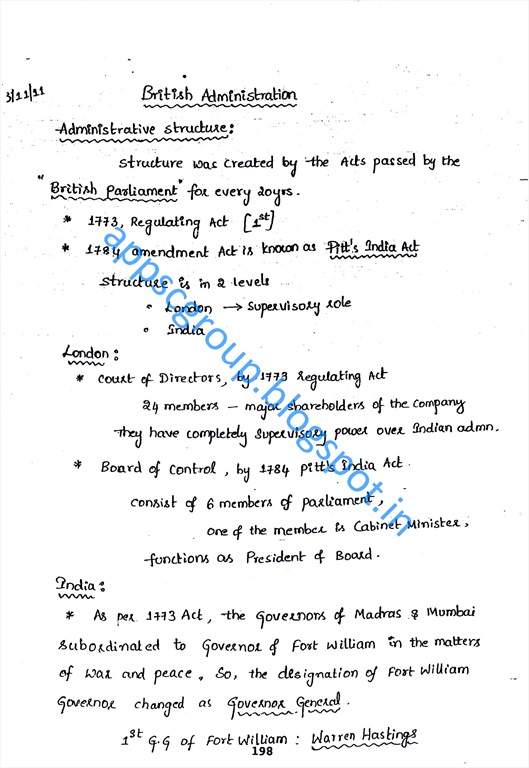 3/11/11
British Administration
Administrative structure:
structure was created by the Acts passed by the
"British Parliament" for every 20yrs.
* 1773, Regulating Act [1st]
* 1784 amendment Act is known as Pitt's India Act
structure is in 2 levels
• London → Supervisory role
• India
London:
* Court of Directors, by 1773 Regulating Act
24 members – major shareholders of the company
They have completely supervisory power over Indian admn.
* Board of Control, by 1784 Pitt's India Act.
consist of 6 members of parliament,
one of the member is Cabinet Minister,
functions as President of Board.
India:
* As per 1773 Act, the Governors of Madras & Mumbai
subordinated to Governor of Fort William in the matters
of war and peace. So, the designation of Fort William
Governor changed as Governor General.
1st G.G of Fort William : Warren Hastings
198
appscgroup.blogspot.in